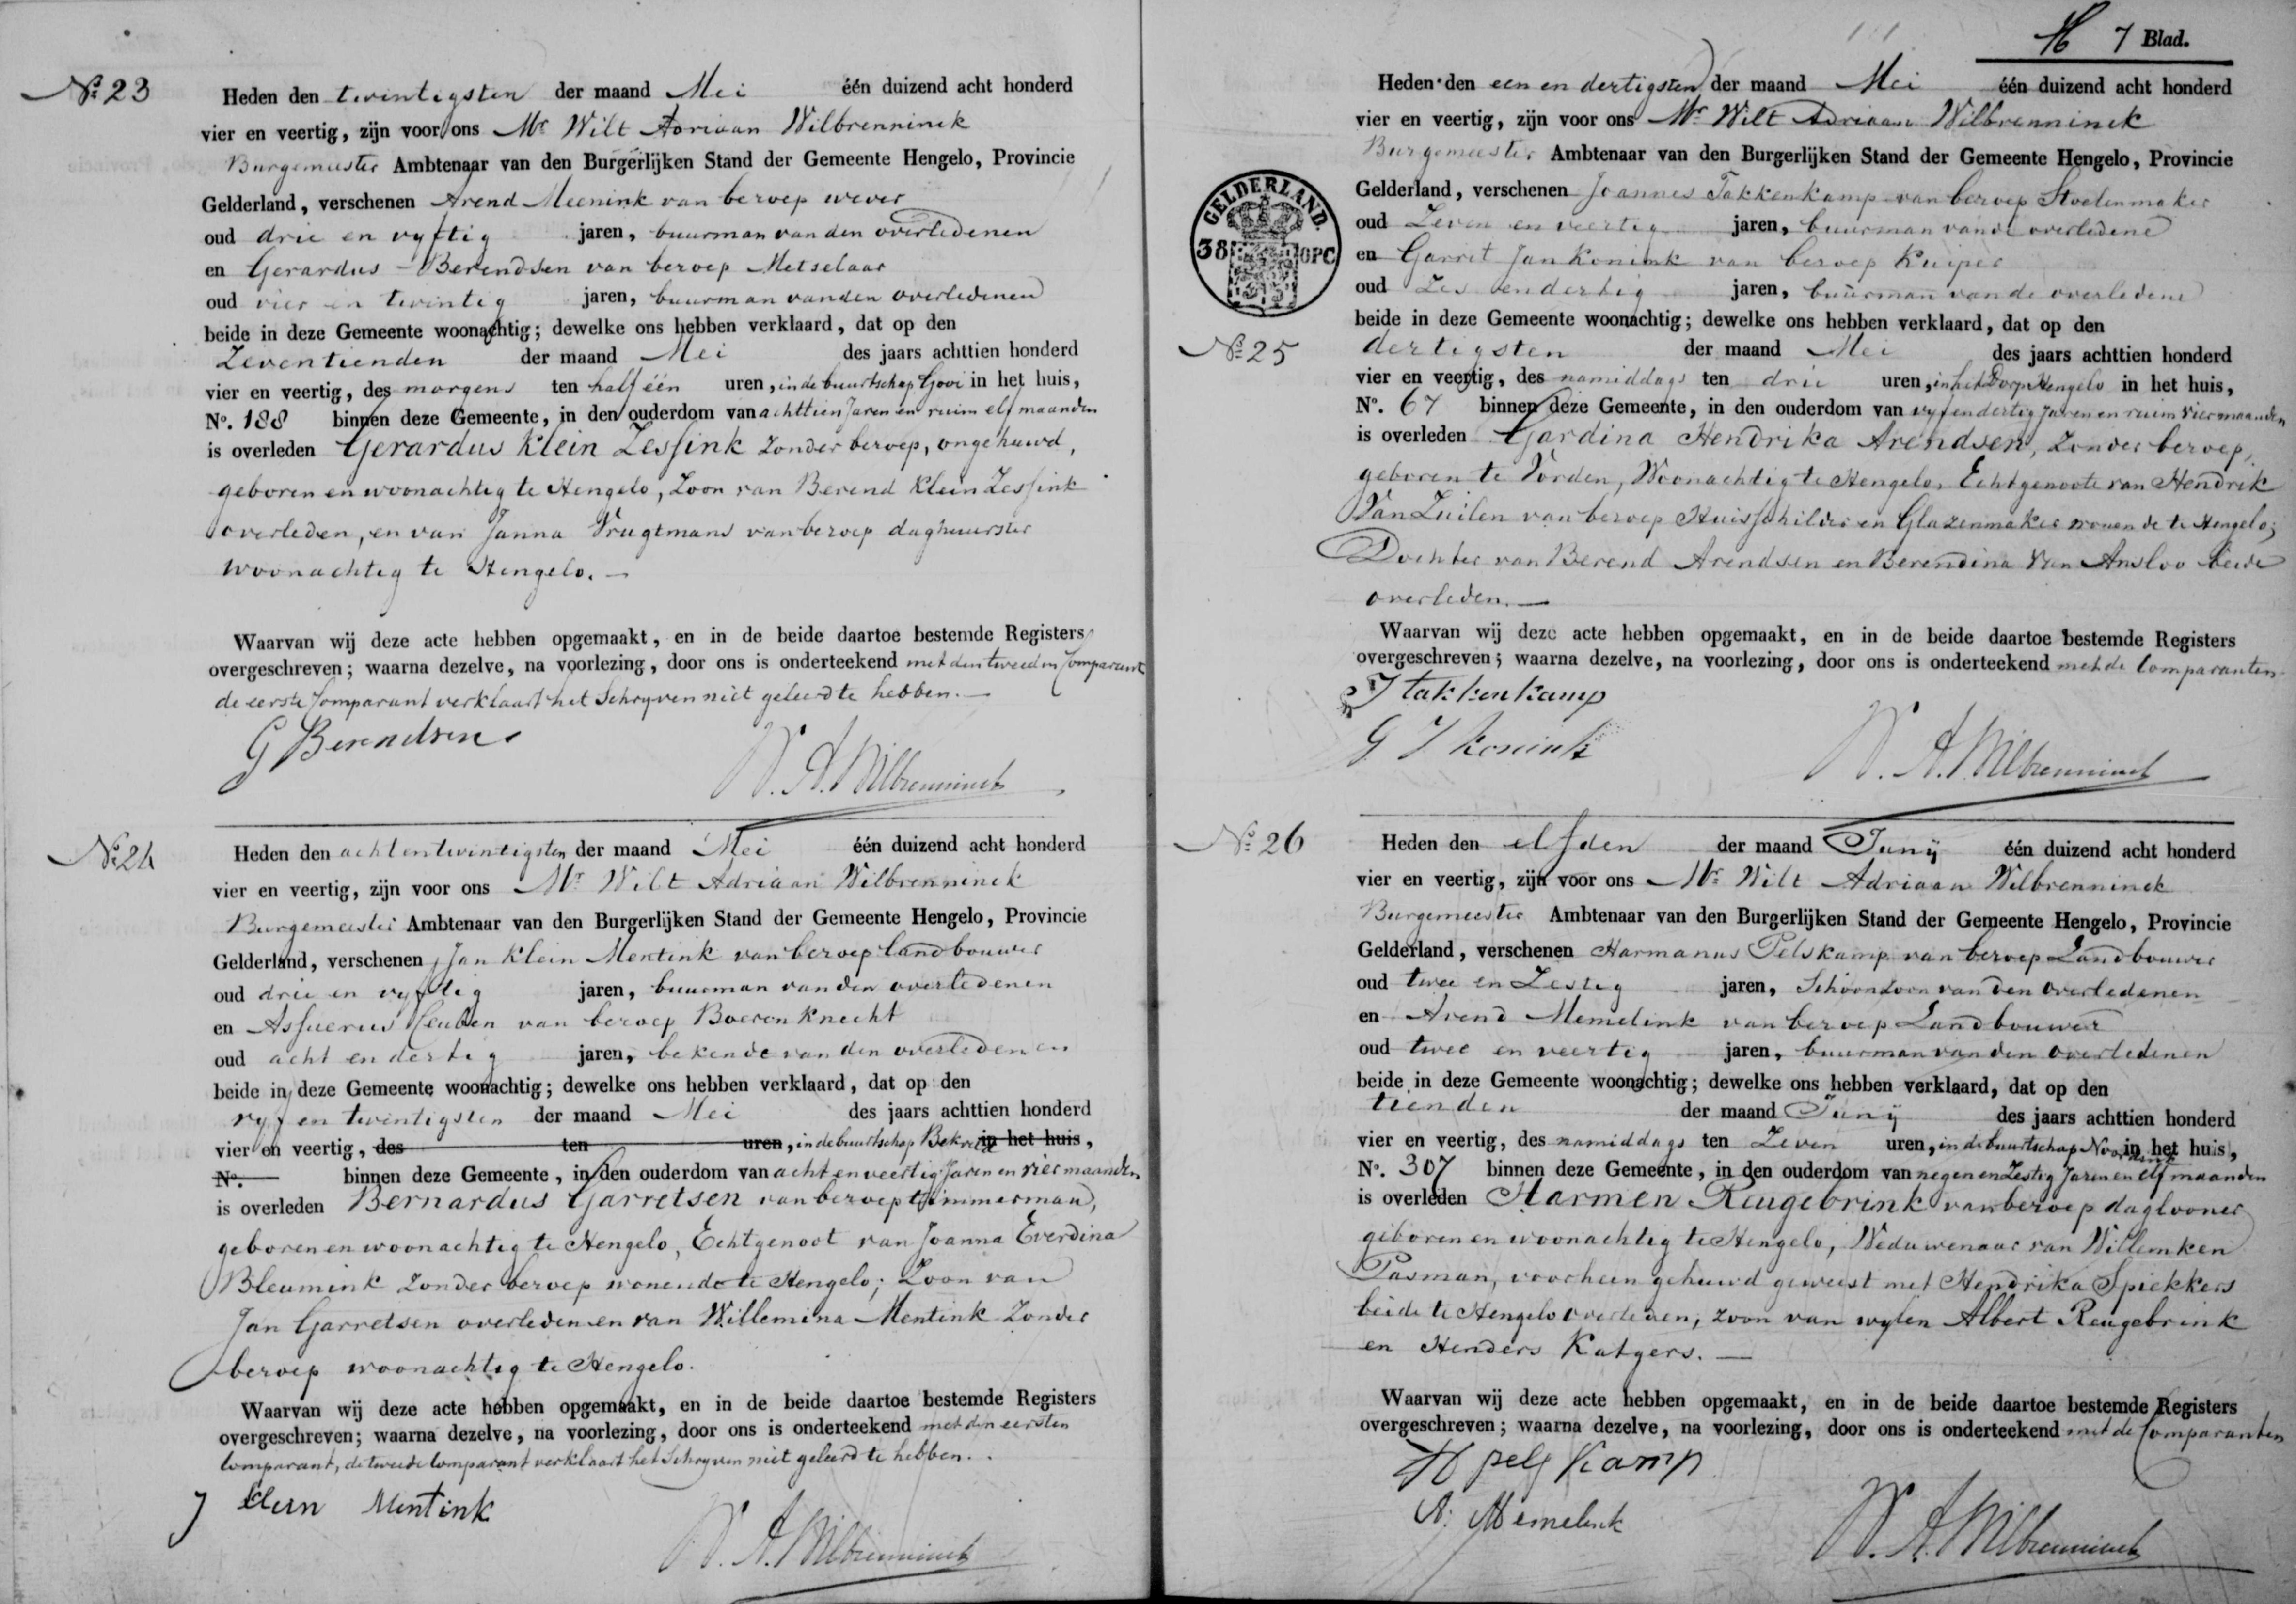 No. 23
Heden den twintigsten der maand Mei één duizend acht honderd
vier en veertig, zijn voor ons Mr. Wilt Adriaan Wilbrenninck
Burgemeester Ambtenaar van den Burgerlijken Stand der Gemeente Hengelo, Provincie
Gelderland, verschenen Arend Meenink van beroep wever
oud drie en vyftig jaren, buurman van den overledenen
en Gerardus Berendsen van beroep Metselaar
oud vier en twintig jaren, buurman van den overledenen
beide in deze Gemeente woonachtig; dewelke ons hebben verklaard, dat op den
Zeventienden der maand Mei des jaars achttien honderd
vier en veertig, des morgens ten half één uren, in de buurtschap Gooi in het huis,
No. 188 binnen deze Gemeente, in den ouderdom van achttien Jaren en ruim elf maanden
is overleden Gerardus Klein Zessink zonder beroep, ongehuwd,
geboren en woonachtig te Hengelo, Zoon van Berend Klein Zessink
overleden, en van Janna Vrugtmans van beroep daghuurster
woonachtig te Hengelo. —
Waarvan wij deze acte hebben opgemaakt, en in de beide daartoe bestemde Registers
overgeschreven; waarna dezelve, na voorlezing, door ons is onderteekend met den tweeden Comparant
de eerste Comparant verklaart het Schryven niet geleerd te hebben. —
G Berendsen
W. A. Wilbrenninck
No. 24
Heden den achtentwintigsten der maand Mei één duizend acht honderd
vier en veertig, zijn voor ons Mr. Wilt Adriaan Wilbrenninck
Burgemeester Ambtenaar van den Burgerlijken Stand der Gemeente Hengelo, Provincie
Gelderland, verschenen Jan Klein Mentink van beroep landbouwer
oud drie en vyftig jaren, buurman van den overledenen
en Assuerus van beroep Boerenknecht
oud acht en dertig jaren, bekende van den overledenen
beide in deze Gemeente woonachtig; dewelke ons hebben verklaard, dat op den
vyf en twintigsten der maand Mei des jaars achttien honderd
vier en veertig, des ten uren, in de buurtschap Bekveld in het huis,
No. binnen deze Gemeente, in den ouderdom van acht en veertig Jaren en vier maanden
is overleden Bernardus Garretsen van beroep timmerman,
geboren en woonachtig te Hengelo, Echtgenoot van Joanna Everdina
Bleumink zonder beroep wonende te Hengelo; Zoon van
Jan Garretsen overleden en van Willemina Mentink Zonder
beroep woonachtig te Hengelo.
Waarvan wij deze acte hebben opgemaakt, en in de beide daartoe bestemde Registers
overgeschreven; waarna dezelve, na voorlezing, door ons is onderteekend met den eersten
Comparant, de tweede Comparant verklaart het Schryven niet geleerd te hebben.
J Klein Mentink
W. A. Wilbrenninck
7 Blad.
Heden den een en dertigsten der maand Mei één duizend acht honderd
vier en veertig, zijn voor ons Mr. Wilt Adriaan Wilbrenninck
Burgemeester Ambtenaar van den Burgerlijken Stand der Gemeente Hengelo, Provincie
Gelderland, verschenen Joannes Takkenkamp van beroep Stoelenmaker
oud Zeven en veertig jaren, buurman van de overledene
en Garret Jan Konink van beroep Kuiper
oud Zes en dertig jaren, buurman van de overledene
beide in deze Gemeente woonachtig; dewelke ons hebben verklaard, dat op den
GELDERLAND.
38 OPC
No. 25
dertigsten der maand Mei des jaars achttien honderd
vier en veertig, des namiddags ten drie uren, in het Dorp Hengelo in het huis,
No. 67 binnen deze Gemeente, in den ouderdom van vyf en dertig Jaren en ruim vier maanden
is overleden Gardina Hendrika Arendsen, zonder beroep,
geboren te Vorden, Woonachtig te Hengelo, Echtgenoote van Hendrik
Van Zuilen van beroep Huisschilder en Glazenmaker wonende te Hengelo;
Dochter van Berend Arendsen en Berendina Van Ansloo beide
overleden. —
Waarvan wij deze acte hebben opgemaakt, en in de beide daartoe bestemde Registers
overgeschreven; waarna dezelve, na voorlezing, door ons is onderteekend met de Comparanten
J takkenkamp
G J Konink
W. A. Wilbrenninck
No. 26
Heden den elfden der maand Junij één duizend acht honderd
vier en veertig, zijn voor ons Mr. Wilt Adriaan Wilbrenninck
Burgemeester Ambtenaar van den Burgerlijken Stand der Gemeente Hengelo, Provincie
Gelderland, verschenen Harmanus Pelskamp van beroep Landbouwer
oud twee en Zestig jaren, Schoonzoon van den overledenen
en Arend Memelink van beroep Landbouwer
oud twee en veertig jaren, buurman van den overledenen
beide in deze Gemeente woonachtig; dewelke ons hebben verklaard, dat op den
tienden der maand Junij des jaars achttien honderd
vier en veertig, des namiddags ten Zeven uren, in de buurtschap Noordink in het huis,
No. 307 binnen deze Gemeente, in den ouderdom van negen en Zestig Jaren en elf maanden
is overleden Harmen Reugebrink van beroep daglooner
geboren en woonachtig te Hengelo, Weduwenaar van Willemken
Pasman, voorheen gehuwd geweest met Hendrika Spiekkers
beide te Hengelo overleden, zoon van wylen Albert Reugebrink
en Henders Katgers. —
Waarvan wij deze acte hebben opgemaakt, en in de beide daartoe bestemde Registers
overgeschreven; waarna dezelve, na voorlezing, door ons is onderteekend met de Comparanten
H pelskamp
A. Memelink
W. A. Wilbrenninck